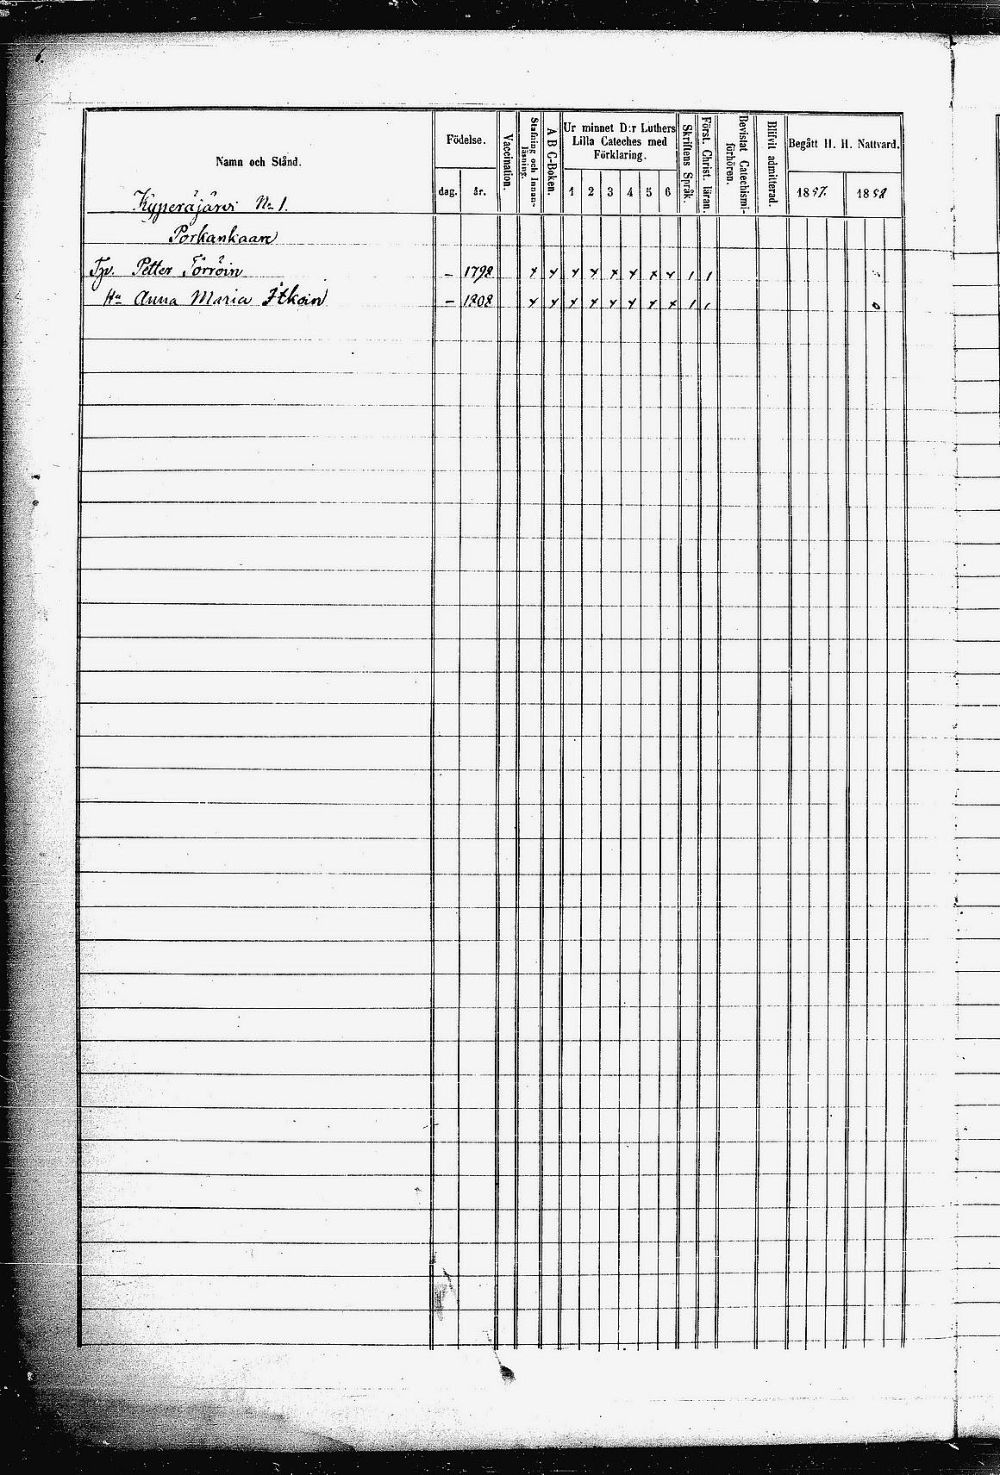 6.
Namn och Stånd.
Födelse.
dag.
år.
Vaccination.
Stafning och Innan-
läsning.
A B C-Boken.
Ur minnet D:r Luthers
Lilla Cateches med
Förklaring.
1 2 3 4 5 6
Skriftens Språk.
Först. Christ. läran.
Bevistat Catechismi-
förhören.
Blifvit admitterad.
Begått H. H. Nattvard.
1857. 1858
Kyyeräjärvi No 1.
Porkankaare
Petter Törröin – 1798 x x x x x x x x / /
Hu Anna Maria Itkoin – 1808 x x x x x x x x / /